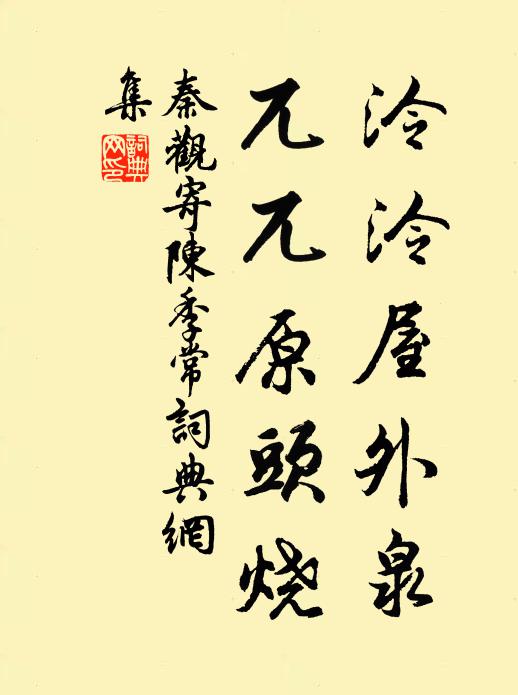 泠泠屋外泉
兀兀原頭燒
秦觀寄陳季常詞典網
集
詞典
网印